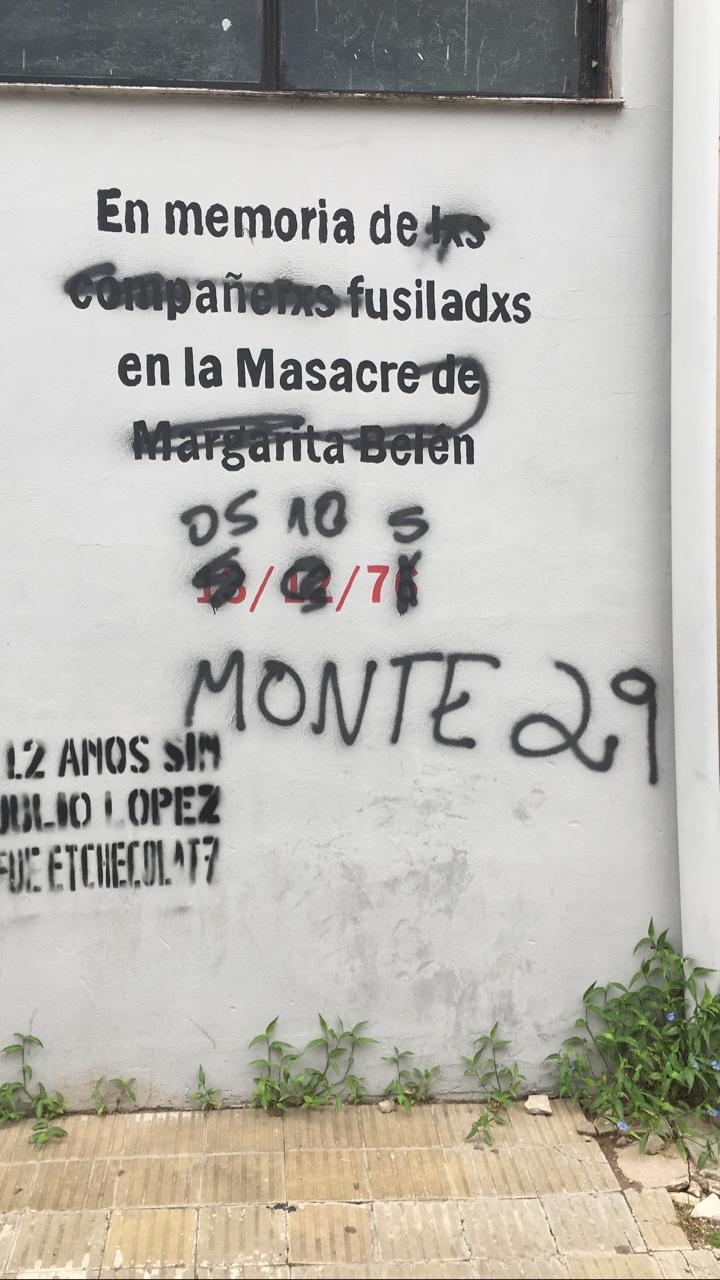 En memoria de lxs
compañerxs fusiladxs
en la Masacre de
Margarita Belén
05 10 5
13/12/76
MONTE 29
12 AÑOS SIN
JULIO LOPEZ
FUE ETCHECOLATZ